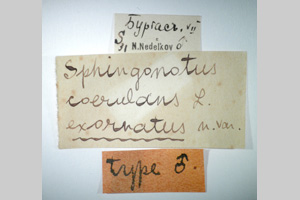 Бургас. VII
N. Nedelkov
Sphingonotus
coerulans L.
exornatus n. var.
type ♂.